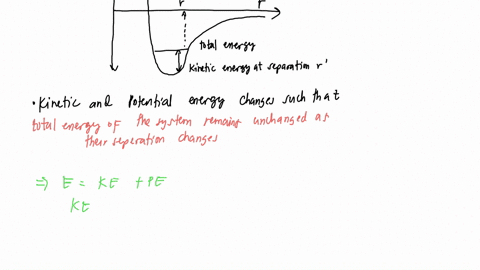 r r
total energy
kinetic energy at separation r'
• Kinetic and Potential energy changes such that
total energy of the system remains unchanged as
their separation changes
⇒ E = KE + PE
KE